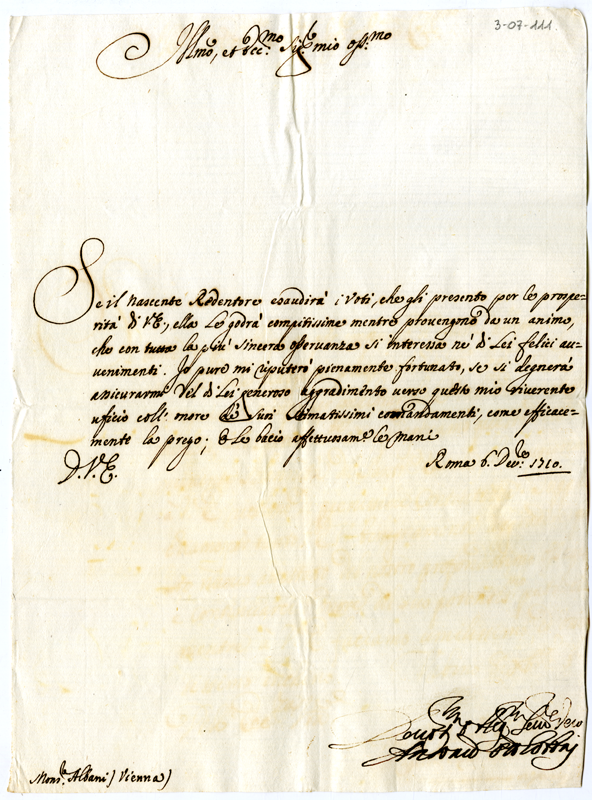 3-07-111
Illmo, et Ecc.mo Sig.re mio oss.mo
Se il Nascente Redentore esaudirà i Voti, che gli presento per le prospe-
rità di V.E., ella Le godrà compitissime mentre provengono da un animo,
che con tutta la più sincera osseruanza si interessa né di Lei felici au-
uenimenti. Io pure mi riputerò pienamente fortunato, se si degnerà
assicurarmi del di Lei generoso aggradimento verso questo mio riverente
ufficio coll' more de' suoi stimatissimi comandamenti, come efficace-
mente la prego; E Le bacio affettuosam.e le Mani
D. V. E. Roma 6. Dec.re 1710.
Deuot.mo Seru.re vero
Antonio
Mons.r Albani (Vienna)